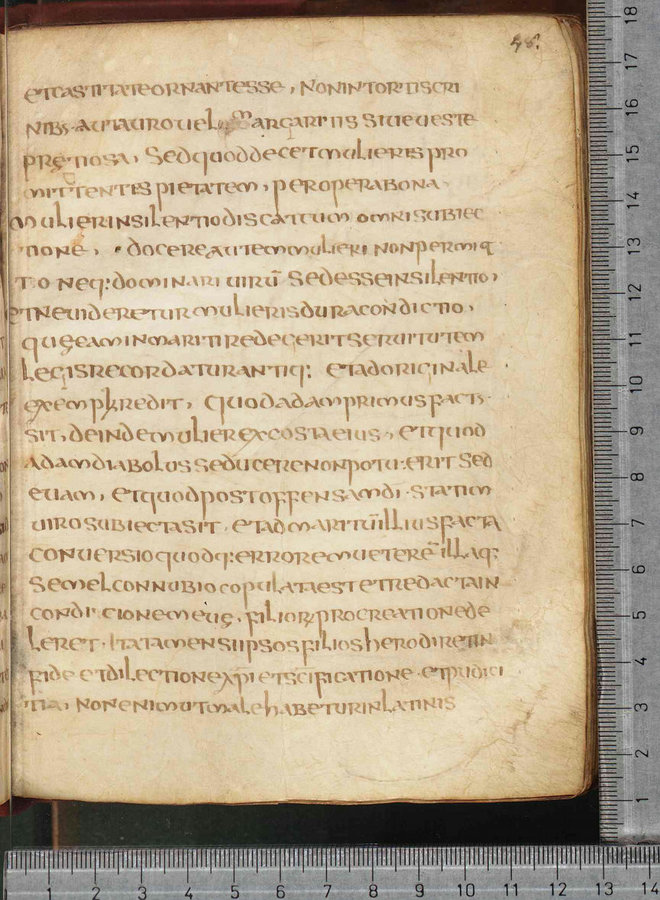 48.
et castitate ornantes se, non in tortis cri
nib; aut auro uel margaritis siue ueste
prętiosa, sed quod decet mulieris pro
mittentis pietatem, per opera bona
mulier in silentio discat cum omni subiec
tione, docere autem mulieri non permit
to neq: dominari uirū sed esse in silentio,
et ne uideretur mulieris dura condictio,
quę eam in mariti redecerit seruitutem
legis recordatur antiq: et ad originale
exemplū redit, quod adam primus fact;
sit, deinde mulier ex costa eius, et quod
adam diabolus seducere non potuerit sed
euam, et quod post offensam dī statim
uiro subiecta sit, et ad maritū illius facta
conuersio quodq: errorem ueterē illa q:
semel connubio copulata est et redacta in
condicionem euę, filiorꝝ procreatione de
leret. Ita tamen si ipsos filios herodiret in
fide et dilectione xp̄i et scīficatione et pudici
tia, non enim ut male habetur in latinis
18
17
16
15
14
13
12
11
10
9
8
7
6
5
4
3
2
1
1 2 3 4 5 6 7 8 9 10 11 12 13 14